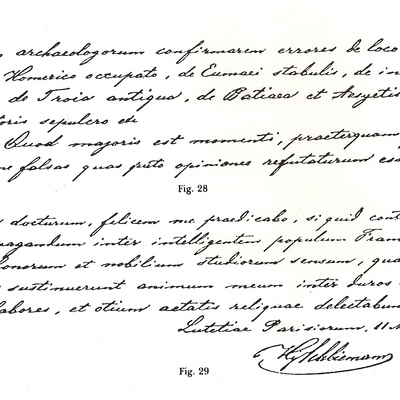 archaeologorum confirmarem errores de loco
Homerico occupato, de Eumaei stabulis, de in
de Troia antiqua, de Batiaea et Aesyetis
toris sepulcro etc
Quod majoris est momenti, praeterquam
me falsas quas puto opiniones refutaturum ess
Fig. 28
s docturum, felicem me praedicabo, si quid cont
pagandum inter intelligentem populum Fran
honorum et nobilium studiorum sensum, qua
sustinuerunt animum meum inter duros
labores, et otium aetatis reliquae delectabun
Lutetiae Parisiorum, 11
HySchliemann
Fig. 29